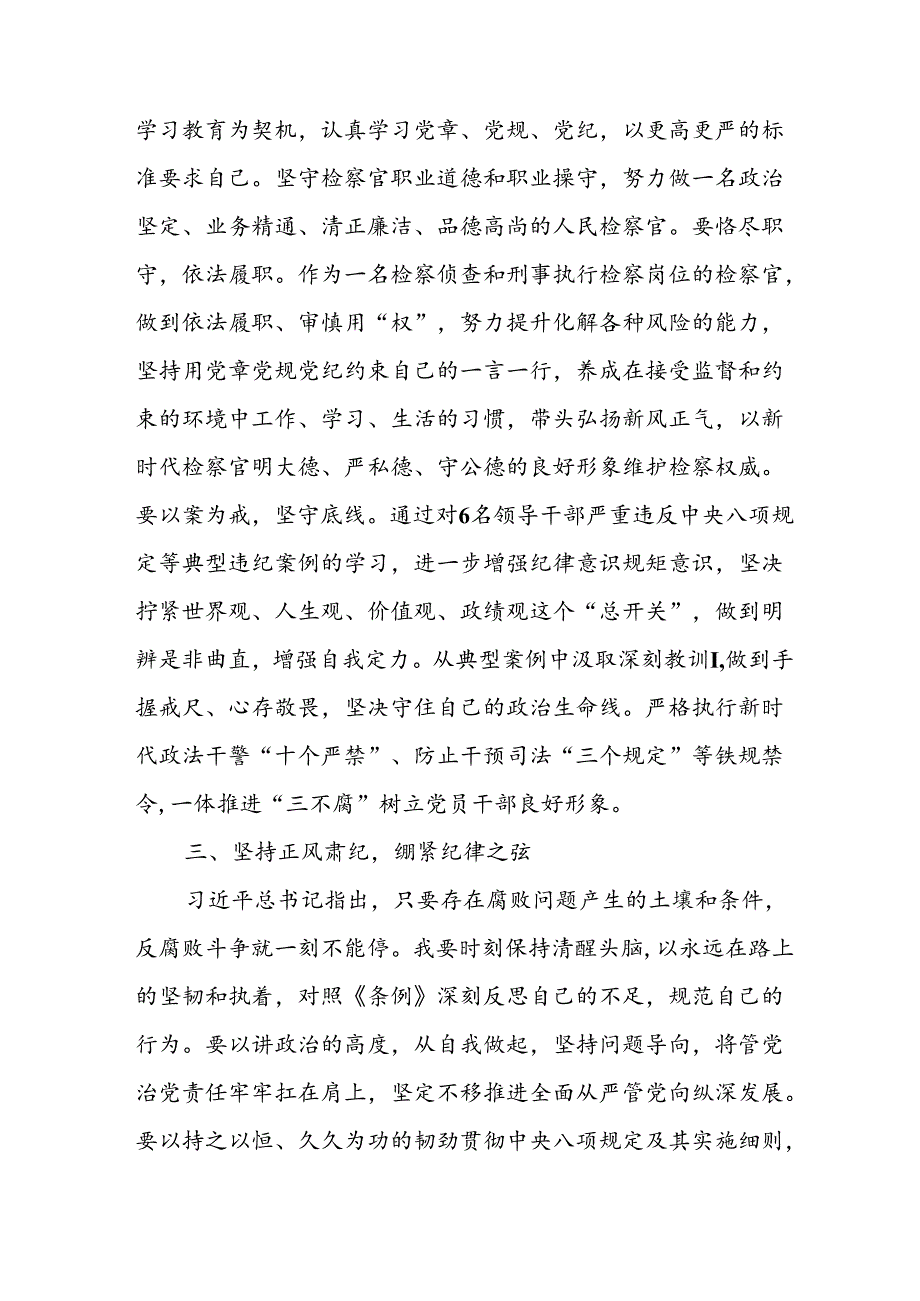 学习教育为契机，认真学习党章、党规、党纪，以更高更严的标
准要求自己。坚守检察官职业道德和职业操守，努力做一名政治
坚定、业务精通、清正廉洁、品德高尚的人民检察官。要恪尽职
守，依法履职。作为一名检察侦查和刑事执行检察岗位的检察官，
做到依法履职、审慎用“权”，努力提升化解各种风险的能力，
坚持用党章党规党纪约束自己的一言一行，养成在接受监督和约
束的环境中工作、学习、生活的习惯，带头弘扬新风正气，以新
时代检察官明大德、严私德、守公德的良好形象维护检察权威。
要以案为戒，坚守底线。通过对6名领导干部严重违反中央八项规
定等典型违纪案例的学习，进一步增强纪律意识规矩意识，坚决
拧紧世界观、人生观、价值观、政绩观这个“总开关”，做到明
辨是非曲直，增强自我定力。从典型案例中汲取深刻教训I,做到手
握戒尺、心存敬畏，坚决守住自己的政治生命线。严格执行新时
代政法干警“十个严禁”、防止干预司法“三个规定”等铁规禁
令,一体推进“三不腐”树立党员干部良好形象。
三、坚持正风肃纪，绷紧纪律之弦
习近平总书记指出，只要存在腐败问题产生的土壤和条件，
反腐败斗争就一刻不能停。我要时刻保持清醒头脑,以永远在路上
的坚韧和执着，对照《条例》深刻反思自己的不足，规范自己的
行为。要以讲政治的高度，从自我做起，坚持问题导向，将管党
治党责任牢牢扛在肩上，坚定不移推进全面从严管党向纵深发展。
要以持之以恒、久久为功的韧劲贯彻中央八项规定及其实施细则，